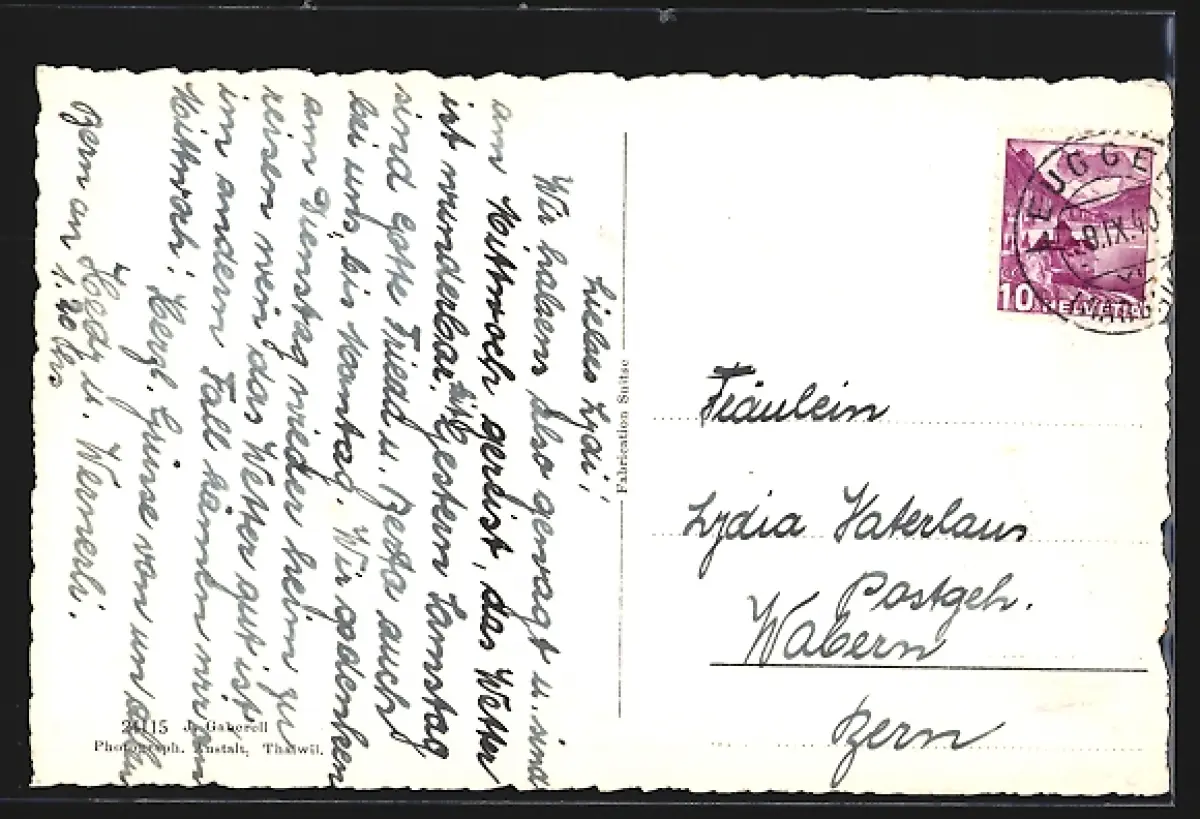 Liebes Lydi!
Wir haben also gewagt u. sind
am Mittwoch gereist, das Wetter
ist wunderbar. Gestern Samstag
sind Gotte Friedi u. Berta auch
bei uns, bis Montag. Wir gedenken
am Dienstag wieder heim zu
reisen wen das Wetter gut ist
im andern Fall kämen wir am
Mittwoch. Herzl. Grüsse von uns allen
Hedy u. Wernerli.
Bern an 1.20 Uhr
24115 J. Gaberell
Photograph. Anstalt, Thalwil.
Fabrication Suisse
10 HELVETIA
AEUGGE
8.IX.40
Fräulein
Lydia Vaterlaus
Postgeh.
Wabern
Bern